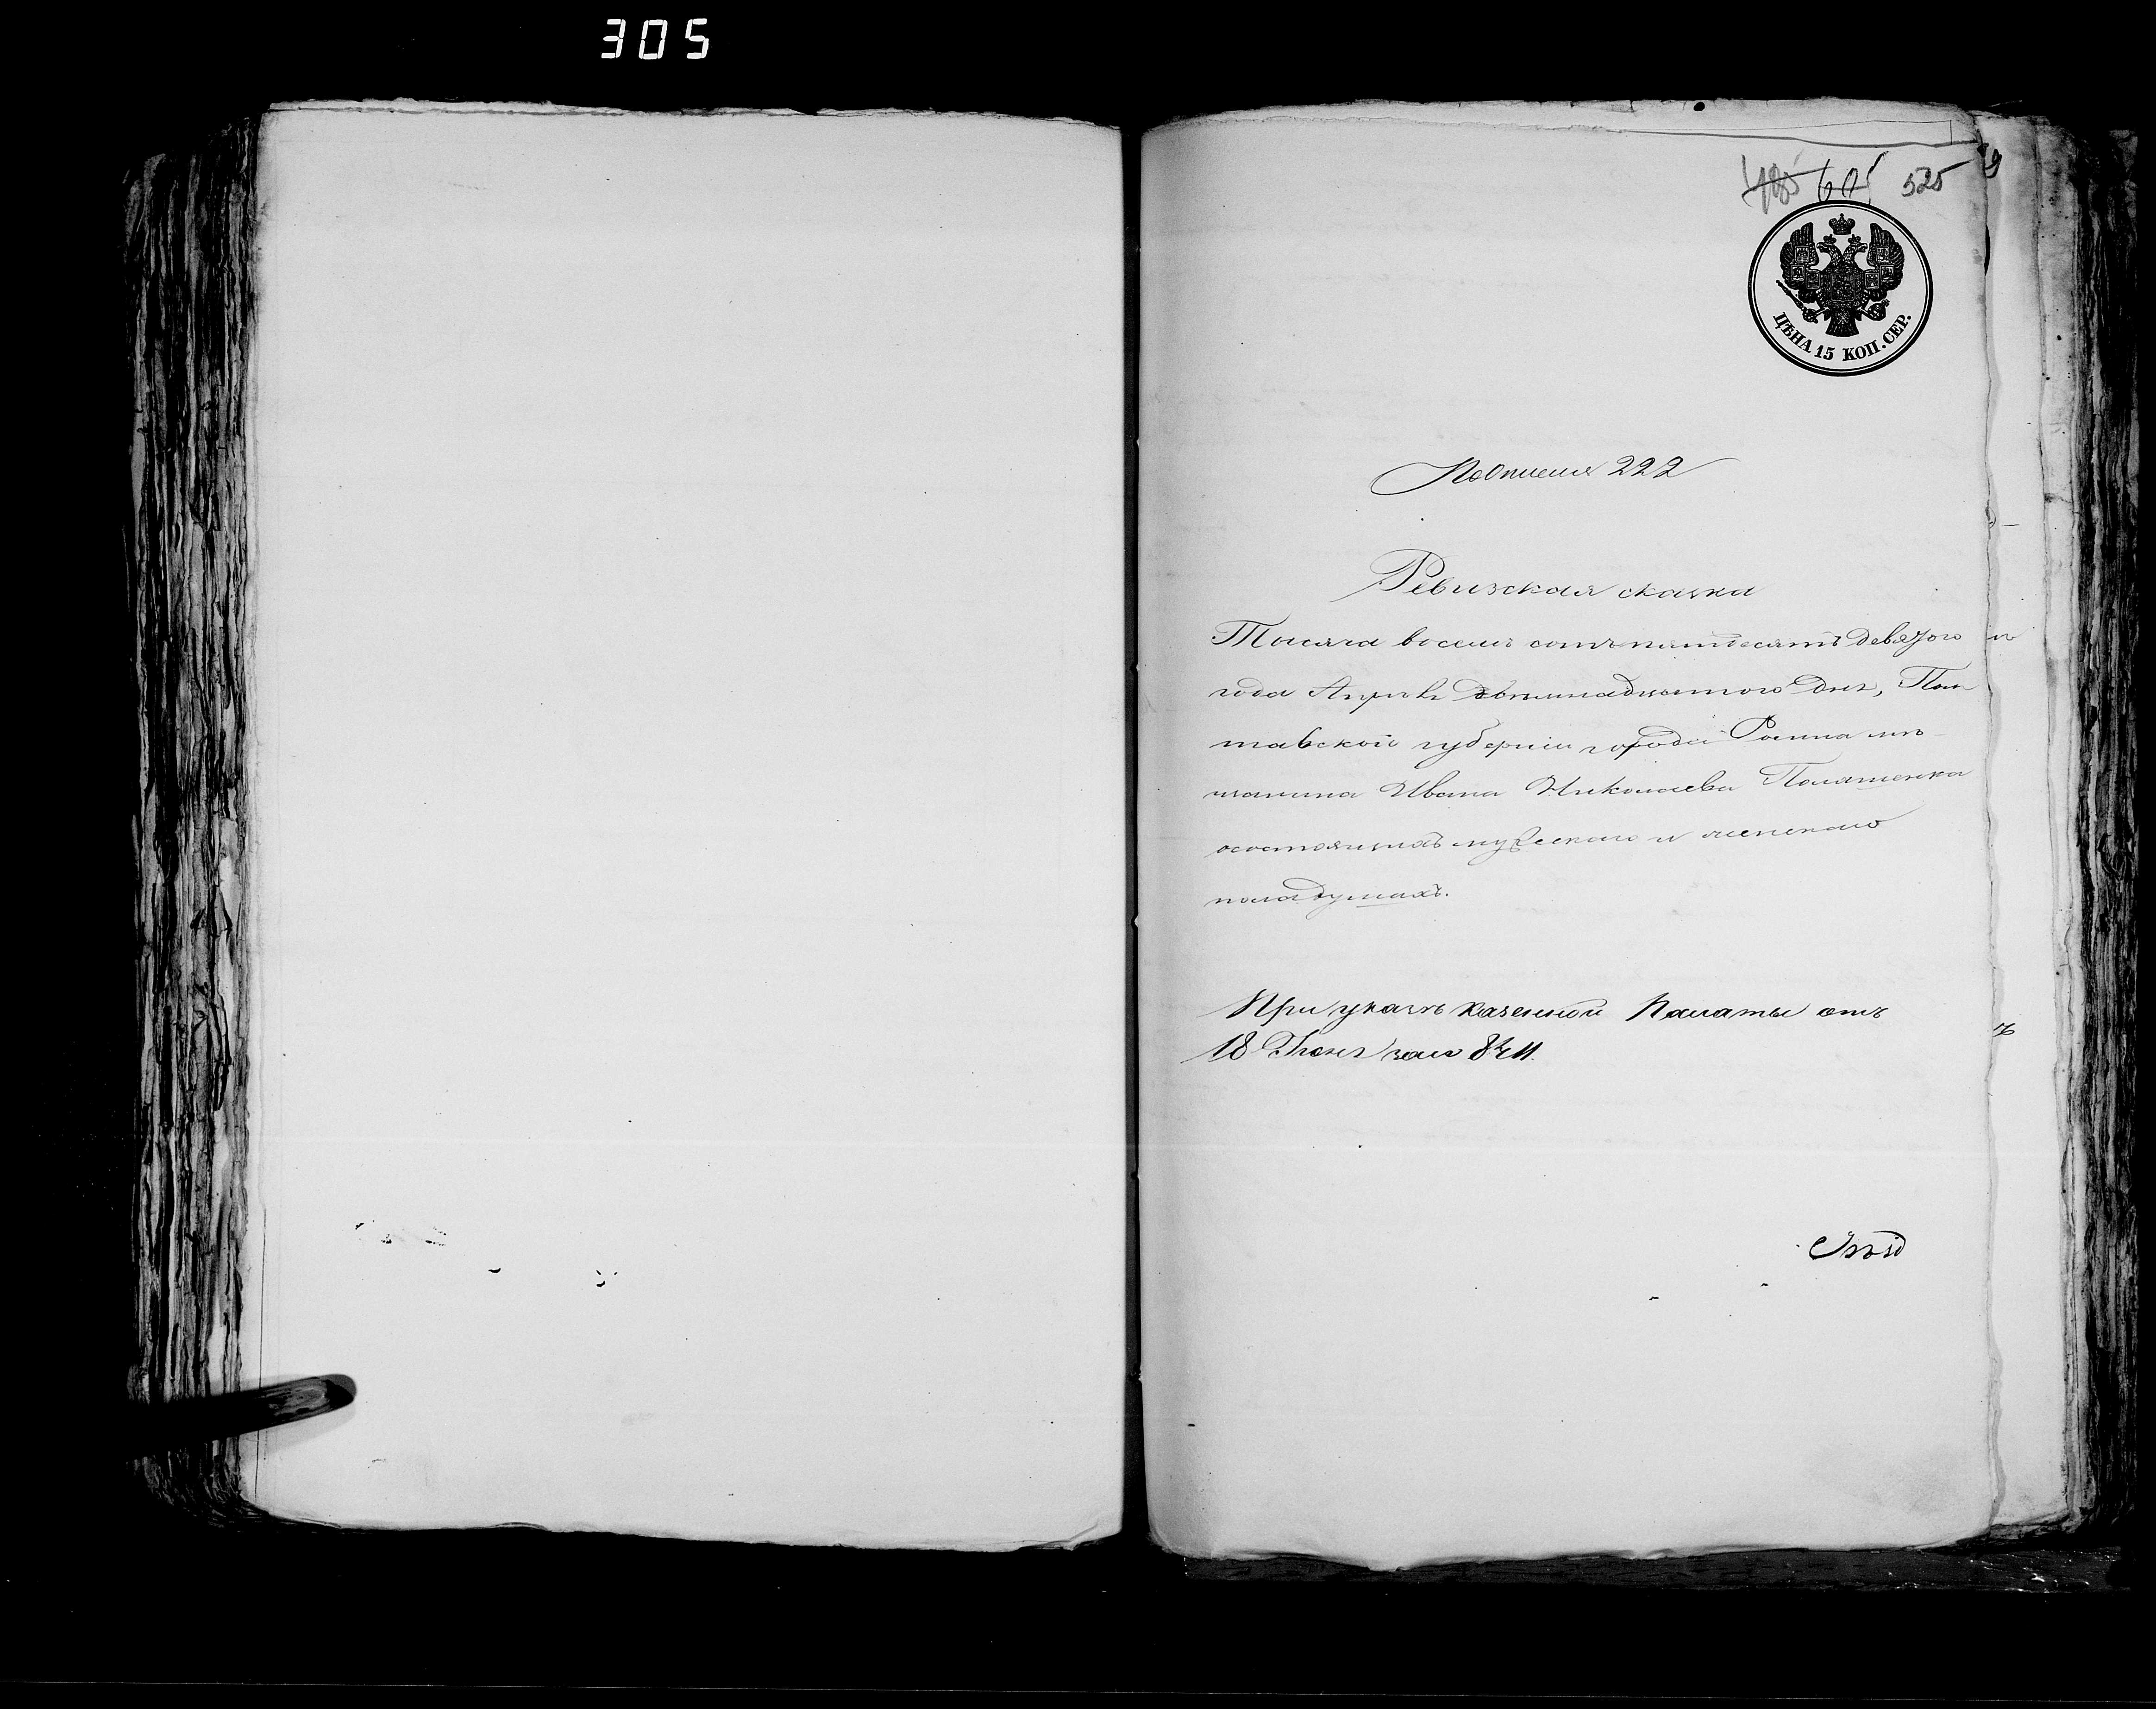 305
605 525
ЦѢНА 15 КОП. СЕР.
По описи 222
Ревизская сказка
Тысяча восемь сотъ пятдесятъ девятого
года Апреля двенадцятого дня, Пол
тавской губернiи города Ромна мѣ-
щанина Ивана Николаева
осостоящихъ мужеского и женского
пола душахъ.
При указѣ Казенной Палаты отъ
18 за №